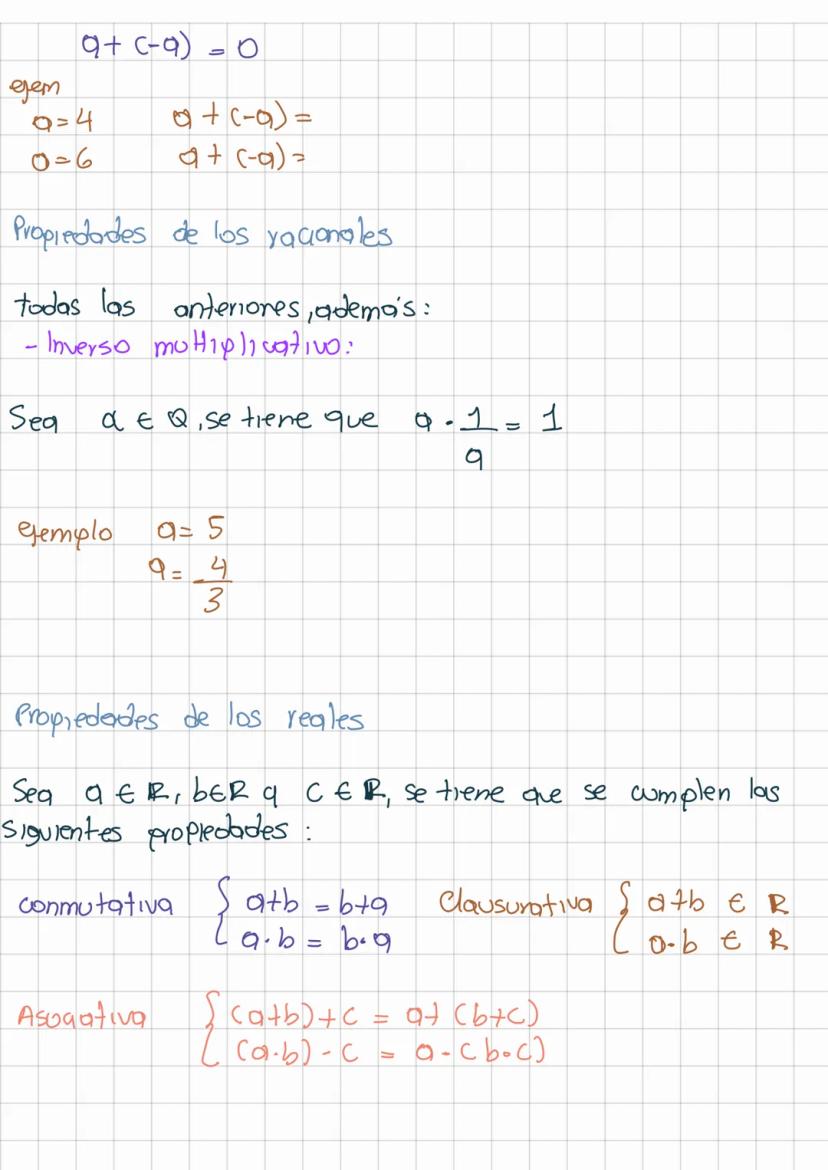 a + (-a) = 0
ejem
a = 4 a + (-a) =
a = 6 a + (-a) =
Propiedades de los racionales
todas las anteriores, además:
- Inverso multiplicativo:
Sea a ∈ Q, se tiene que a · 1/a = 1
ejemplo a = 5
a = 4/3
Propiedades de los reales
Sea a ∈ R, b ∈ R y c ∈ R, se tiene que se cumplen las
siguientes propiedades:
conmutativa { a+b = b+a Clausurativa { a+b ∈ R
a·b = b·a a·b ∈ R
Asociativa { (a+b)+c = a+(b+c)
(a·b)·c = a·(b·c)